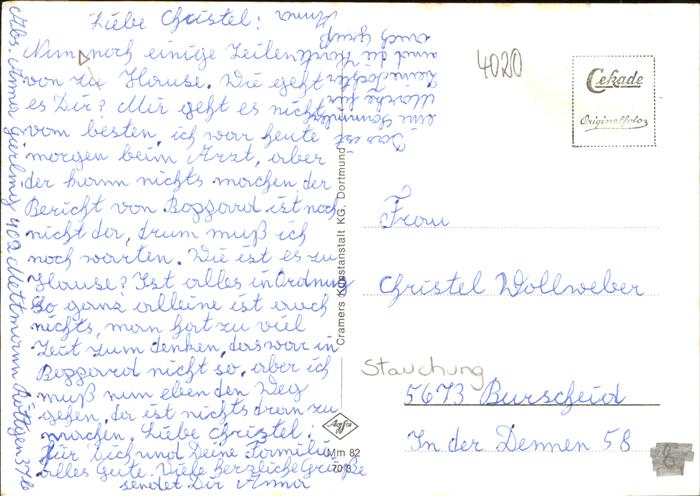 Liebe Christel!
Nun noch einige Zeilen
von zu Hause. Wie geht
es Dir? Mir geht es nicht
vom besten, ich war heute
morgen beim Arzt, aber
der kann nichts machen, der
Bericht von Boppard ist noch
nicht da, drum muß ich
noch warten. Wie ist es zu
Hause? Ist alles in Ordnung
so ganz alleine ist auch
nichts, man hat zu viel
Zeit zum denken, das war in
Boppard nicht so, aber ich
muß nun eben den Weg
gehen, da ist nichts dran zu
machen. Liebe Christel!
für Dich und Deine Familie
alles Gute. Viele herzliche Grüße
sendet Dir Anna
Das ist
eine
für
Deine Tochter
und die
auch Gruß
Anna
Abs. Anna 402 Mettmann Röttgen 37b
Cramers Kunstanstalt KG, Dortmund
Agfa
Mm 82
70 8
4020
Cekade
Originalfoto
Frau
Christel Wollweber
Stauchung
5673 Burscheid
In der Dennen 58
8